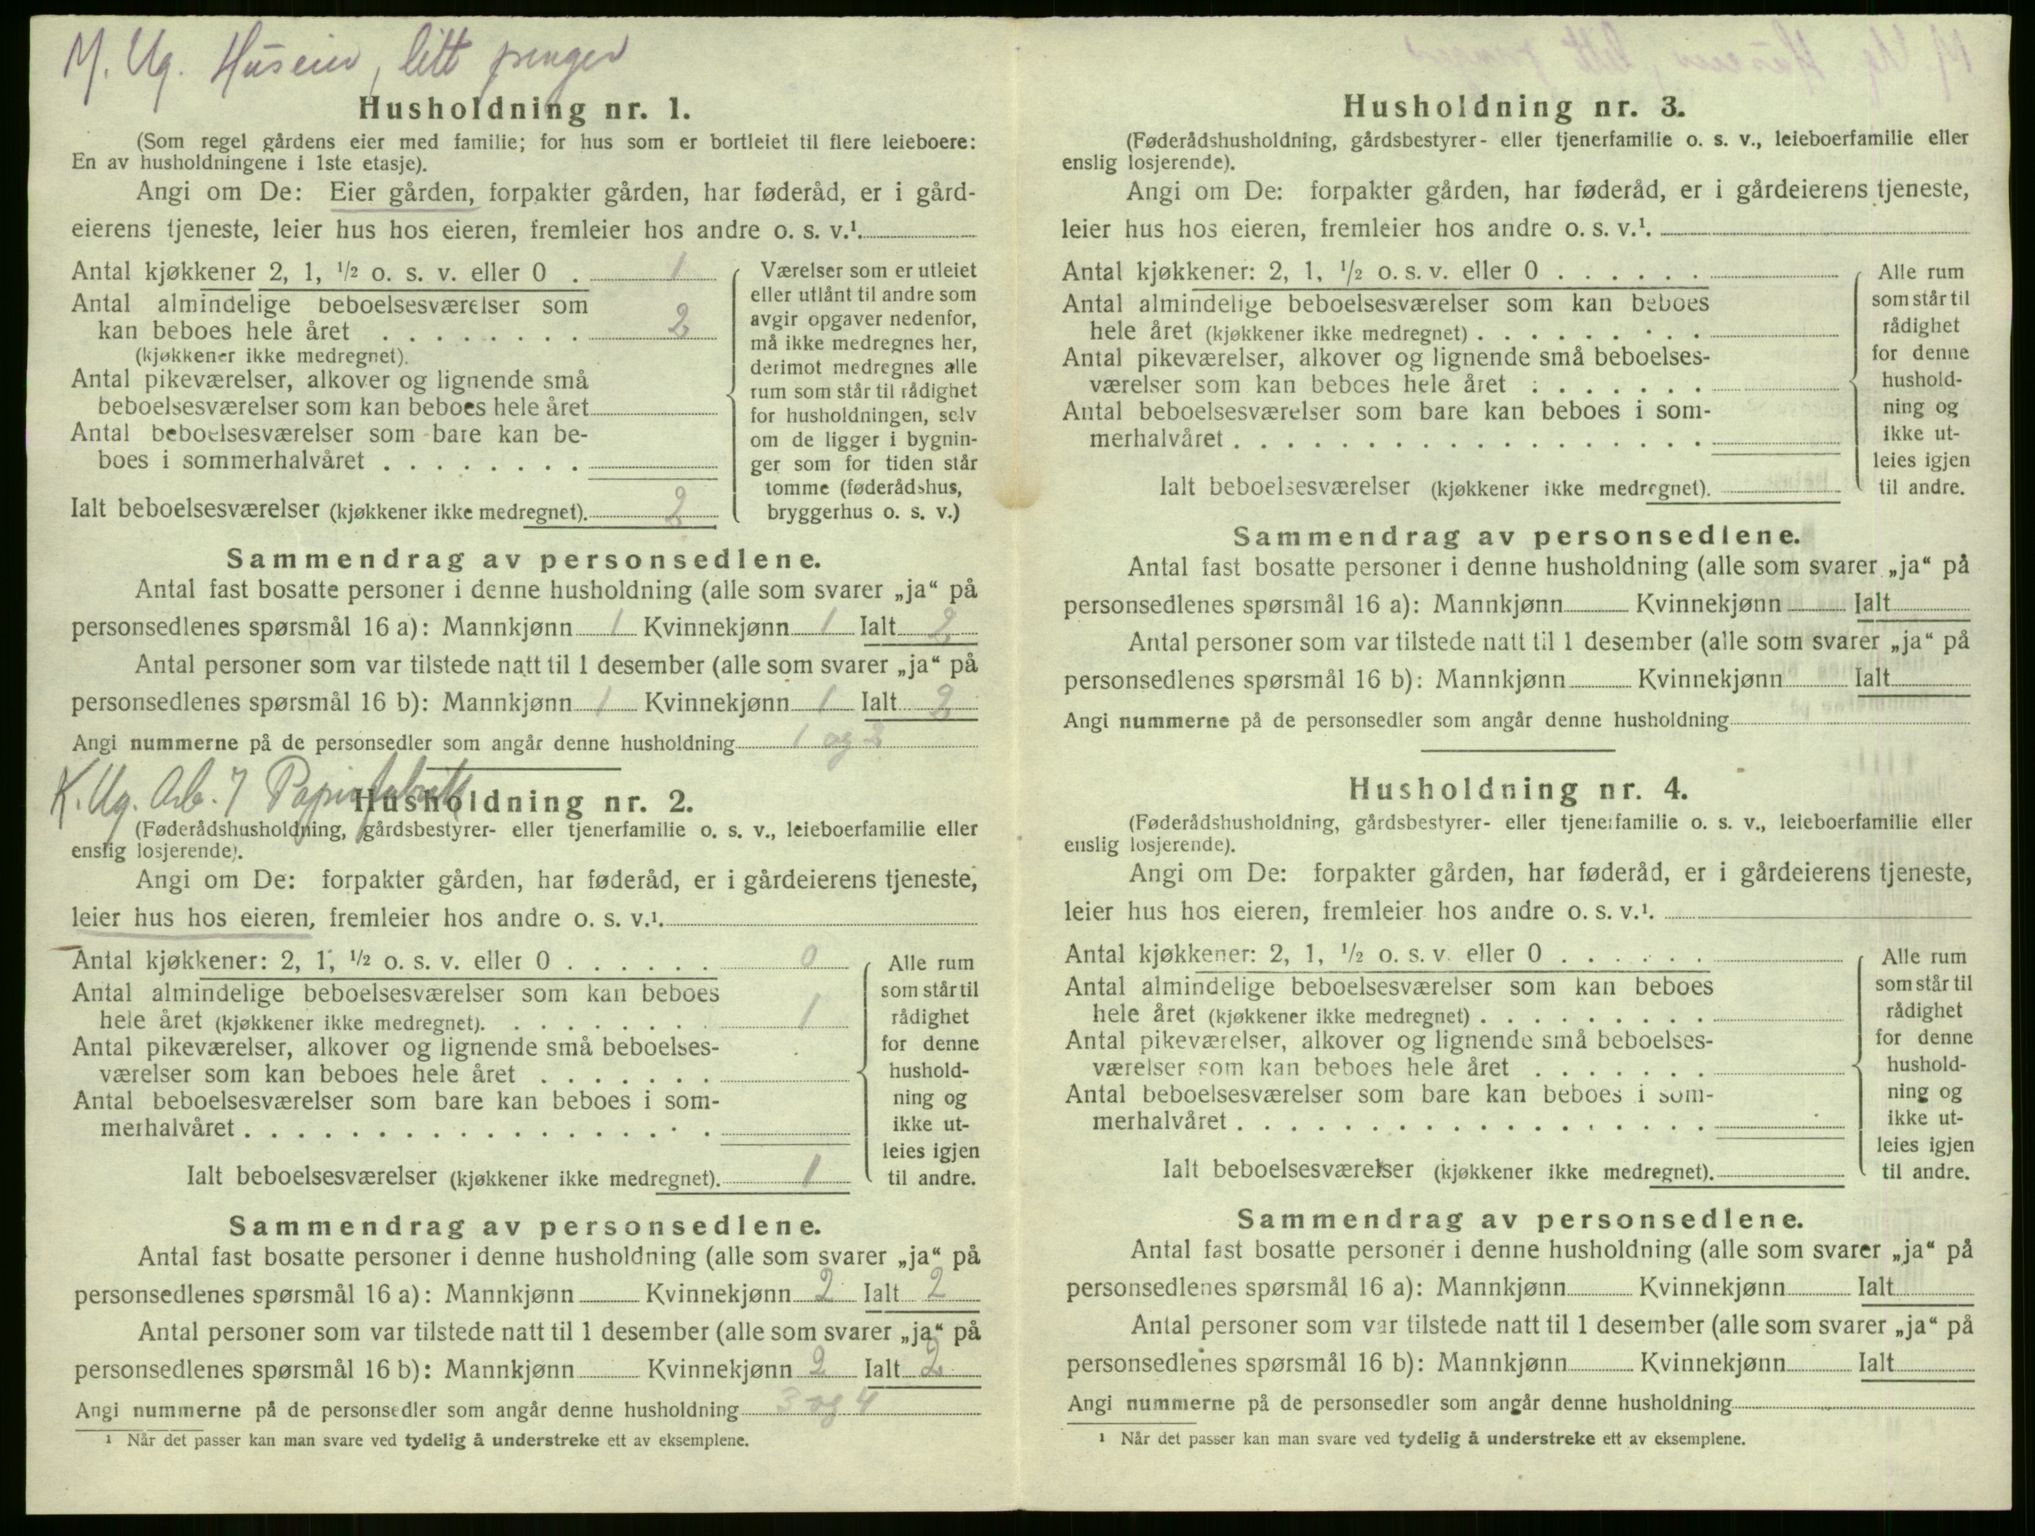 M. Ug. Huseier, litt penger
Husholdning nr. 1.
(Som regel gårdens eier med familie; for hus som er bortleiet til flere leieboere:
En av husholdningene i 1ste etasje).
Angi om De: Eier gården, forpakter gården, har føderåd, er i gård-
eierens tjeneste, leier hus hos eieren, fremleier hos andre o. s. v.¹.
Antal kjøkkener 2, 1, ½ o. s. v. eller 0 . 1
Antal almindelige beboelsesværelser som
kan beboes hele året . . . . . . . . 2
(kjøkkener ikke medregnet).
Antal pikeværelser, alkover og lignende små
beboelsesværelser som kan beboes hele året
Antal beboelsesværelser som bare kan be-
boes i sommerhalvåret . . . . . . . .
Ialt beboelsesværelser (kjøkkener ikke medregnet). 2
Værelser som er utleiet
eller utlånt til andre som
avgir opgaver nedenfor,
må ikke medregnes her,
derimot medregnes alle
rum som står til rådighet
for husholdningen, selv
om de ligger i bygnin-
ger som for tiden står
tomme (føderådshus,
bryggerhus o. s. v.)
Sammendrag av personsedlene.
Antal fast bosatte personer i denne husholdning (alle som svarer „ja“ på
personsedlenes spørsmål 16 a): Mannkjønn 1 Kvinnekjønn 1 Ialt 2
Antal personer som var tilstede natt til 1 desember (alle som svarer „ja“ på
personsedlenes spørsmål 16 b): Mannkjønn 1 Kvinnekjønn 1 Ialt 2
Angi nummerne på de personsedler som angår denne husholdning 1 og 2
K. Ug. Arb. 7 Papirfabrikk
Husholdning nr. 2.
(Føderådshusholdning, gårdsbestyrer- eller tjenerfamilie o. s. v., leieboerfamilie eller
enslig losjerende).
Angi om De: forpakter gården, har føderåd, er i gårdeierens tjeneste,
leier hus hos eieren, fremleier hos andre o. s. v.¹.
Antal kjøkkener: 2, 1, ½ o. s. v. eller 0 . . . . . . 0
Antal almindelige beboelsesværelser som kan beboes
hele året (kjøkkener ikke medregnet). . . . . . . . . 1
Antal pikeværelser, alkover og lignende små beboelses-
værelser som kan beboes hele året . . . . . . .
Antal beboelsesværelser som bare kan beboes i som-
merhalvåret . . . . . . . . . . . . . . . . . .
Ialt beboelsesværelser (kjøkkener ikke medregnet). 1
Alle rum
som står til
rådighet
for denne
hushold-
ning og
ikke ut-
leies igjen
til andre.
Sammendrag av personsedlene.
Antal fast bosatte personer i denne husholdning (alle som svarer „ja“ på
personsedlenes spørsmål 16 a): Mannkjønn Kvinnekjønn 2 Ialt 2
Antal personer som var tilstede natt til 1 desember (alle som svarer „ja“ på
personsedlenes spørsmål 16 b): Mannkjønn Kvinnekjønn 2 Ialt 2
Angi nummerne på de personsedler som angår denne husholdning 3 og 4
¹ Når det passer kan man svare ved tydelig å understreke ett av eksemplene.
Husholdning nr. 3.
(Føderådshusholdning, gårdsbestyrer- eller tjenerfamilie o. s. v., leieboerfamilie eller
enslig losjerende).
Angi om De: forpakter gården, har føderåd, er i gårdeierens tjeneste,
leier hus hos eieren, fremleier hos andre o. s. v.¹.
Antal kjøkkener: 2, 1, ½ o. s. v. eller 0 . . . . . .
Antal almindelige beboelsesværelser som kan beboes
hele året (kjøkkener ikke medregnet) . . . . . . . . .
Antal pikeværelser, alkover og lignende små beboelses-
værelser som kan beboes hele året . . . . . . .
Antal beboelsesværelser som bare kan beboes i som-
merhalvåret . . . . . . . . . . . . . . . . . .
Ialt beboelsesværelser (kjøkkener ikke medregnet).
Alle rum
som står til
rådighet
for denne
hushold-
ning og
ikke ut-
leies igjen
til andre.
Sammendrag av personsedlene.
Antal fast bosatte personer i denne husholdning (alle som svarer „ja“ på
personsedlenes spørsmål 16 a): Mannkjønn Kvinnekjønn Ialt
Antal personer som var tilstede natt til 1 desember (alle som svarer „ja“ på
personsedlenes spørsmål 16 b): Mannkjønn Kvinnekjønn Ialt
Angi nummerne på de personsedler som angår denne husholdning
Husholdning nr. 4.
(Føderådshusholdning, gårdsbestyrer- eller tjenerfamilie o. s. v., leieboerfamilie eller
enslig losjerende).
Angi om De: forpakter gården, har føderåd, er i gårdeierens tjeneste,
leier hus hos eieren, fremleier hos andre o. s. v.¹.
Antal kjøkkener: 2, 1, ½ o. s. v. eller 0 . . . . . .
Antal almindelige beboelsesværelser som kan beboes
hele året (kjøkkener ikke medregnet) . . . . . . . . .
Antal pikeværelser, alkover og lignende små beboelses-
værelser som kan beboes hele året . . . . . . .
Antal beboelsesværelser som bare kan beboes i som-
merhalvåret . . . . . . . . . . . . . . . . . .
Ialt beboelsesværelser (kjøkkener ikke medregnet).
Alle rum
som står til
rådighet
for denne
hushold-
ning og
ikke ut-
leies igjen
til andre.
Sammendrag av personsedlene.
Antal fast bosatte personer i denne husholdning (alle som svarer „ja“ på
personsedlenes spørsmål 16 a): Mannkjønn Kvinnekjønn Ialt
Antal personer som var tilstede natt til 1 desember (alle som svarer „ja“ på
personsedlenes spørsmål 16 b): Mannkjønn Kvinnekjønn Ialt
Angi nummerne på de personsedler som angår denne husholdning
¹ Når det passer kan man svare ved tydelig å understreke ett av eksemplene.